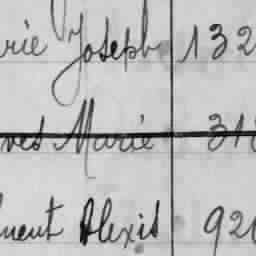 rie Joseph 132
ves Marie 318
ment Alexis 920